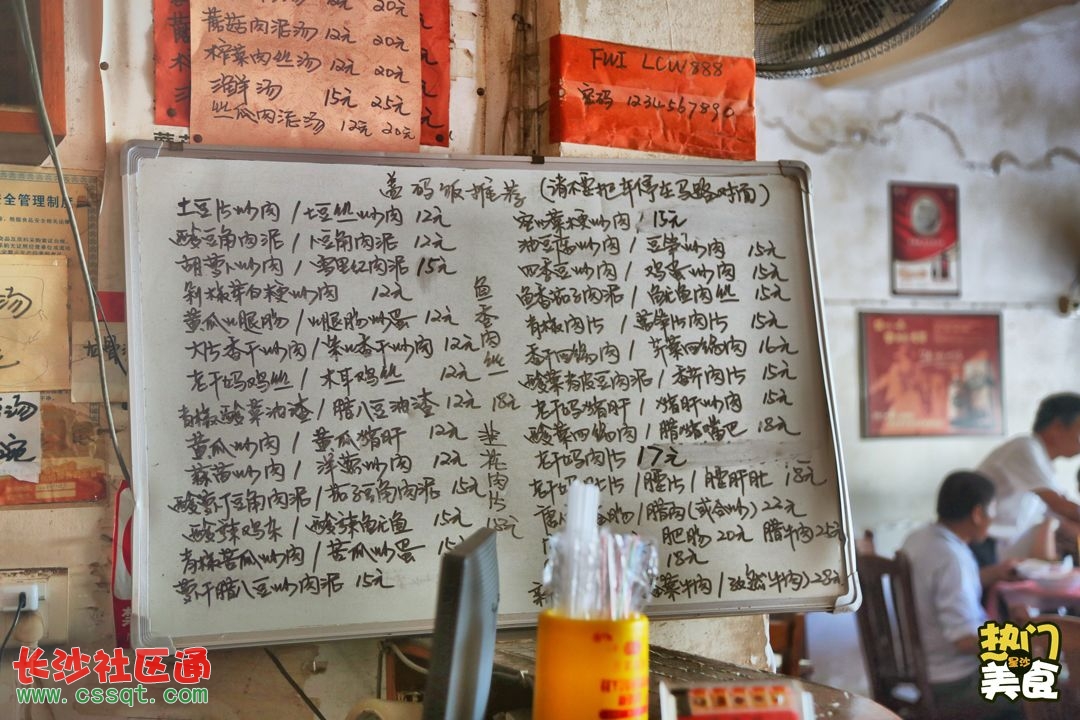 12元 20元
蘑菇肉泥汤 12元 20元
榨菜肉丝汤 12元 20元
海鲜汤 15元 25元
丝瓜肉泥汤 12元 20元
FWI LCW888
密码 1234567890
安全管理制度
汤
汤
碗
盖码饭推荐 (请不要把车停在马路对面)
土豆片炒肉 / 土豆丝炒肉 12元
酸豆角肉泥 / 卜豆角肉泥 12元
胡萝卜炒肉 / 雪里红肉泥 15元
剁椒芽白梗炒肉 12元
黄瓜火腿肠 / 火腿肠炒蛋 12元
大片香干炒肉 / 香干炒肉 12元
老干妈鸡丝 / 木耳鸡丝 12元
青椒酸菜油渣 / 腊八豆油渣 12元
黄瓜炒肉 / 黄瓜猪肝 12元
蒜苗炒肉 / 洋葱炒肉 12元
酸萝卜豆角肉泥 / 茄子豆角肉泥 15元
酸辣鸡杂 / 酸辣鱿鱼 15元
青椒苦瓜炒肉 / 苦瓜炒蛋 15
萝干腊八豆炒肉泥 15元
鱼香肉丝 18元
韭花肉片 18元
菜梗炒肉 / 15元
油豆腐炒肉 / 豆笋炒肉 15元
四季豆炒肉 / 鸡蛋炒肉 15元
鱼香茄子肉泥 / 鱿鱼肉丝 15元
青椒肉片 / 莴笋片肉片 15元
香干回锅肉 / 芹菜回锅肉 16元
酸菜青皮豆肉泥 / 香干肉片 15元
老干妈猪肝 / 猪肝炒肉 15元
酸菜回锅肉 / 腊猪嘴巴 18元
老干妈肉片 17元
老干妈 片 / 腰片 / 腰肝肚 18元
肠 / 腊肉 (或合炒) 22元
肥肠 20元 腊牛肉 25元
18元
菜牛肉 / 牛肉) 28元
长沙社区通
www.cssqt.com
热门
星沙
美食